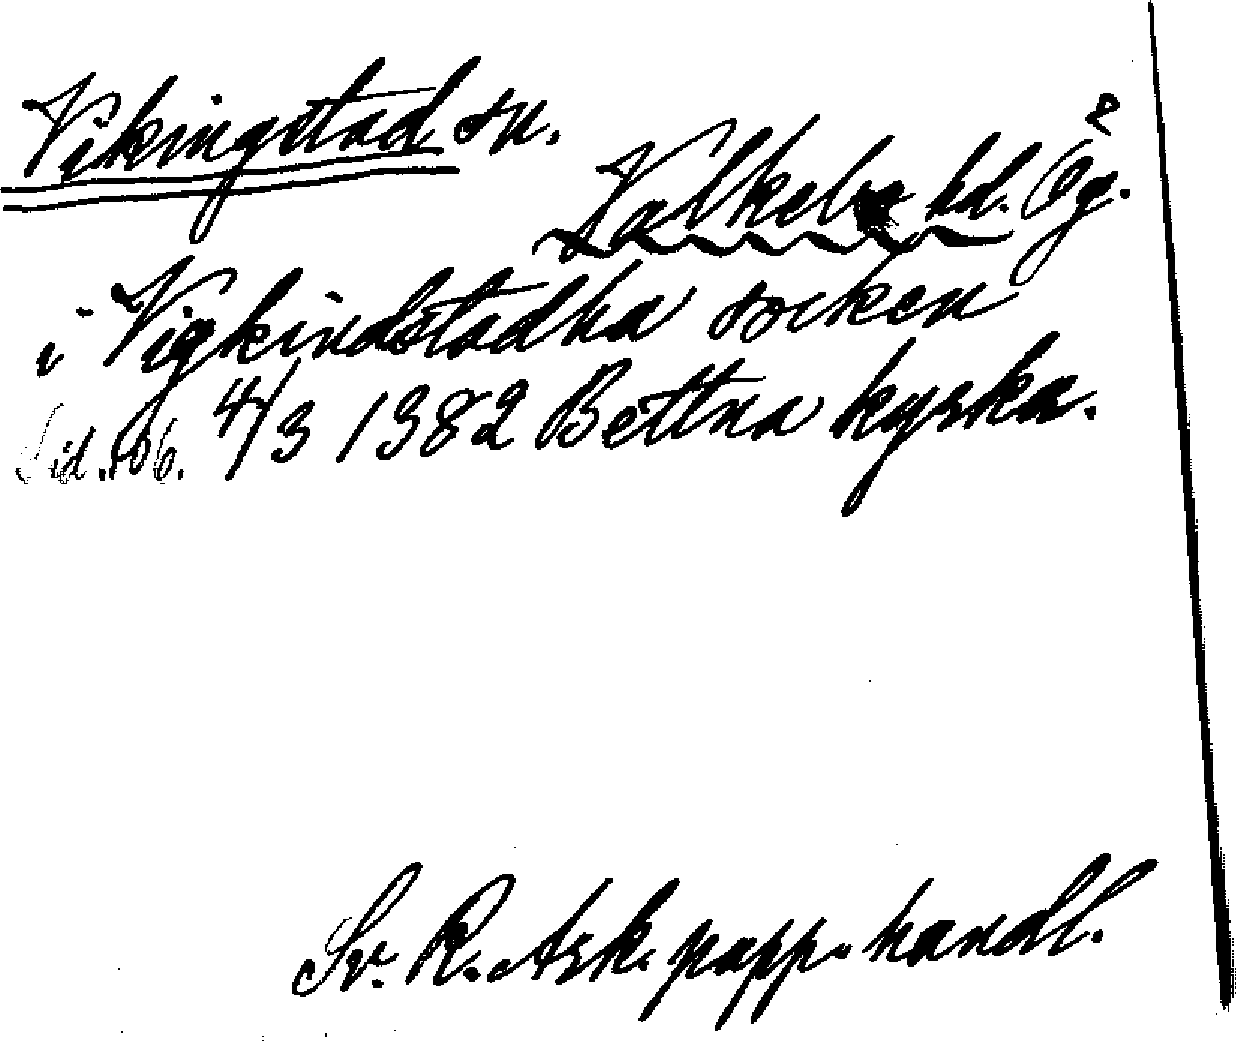 Vikingstad sn.
Valkebo hd. Ög.
i Vigkindstadha socken
Sid. 106. 4/3 1382 Bettna kyrka.
Sv. R. Ark. papp. handl.